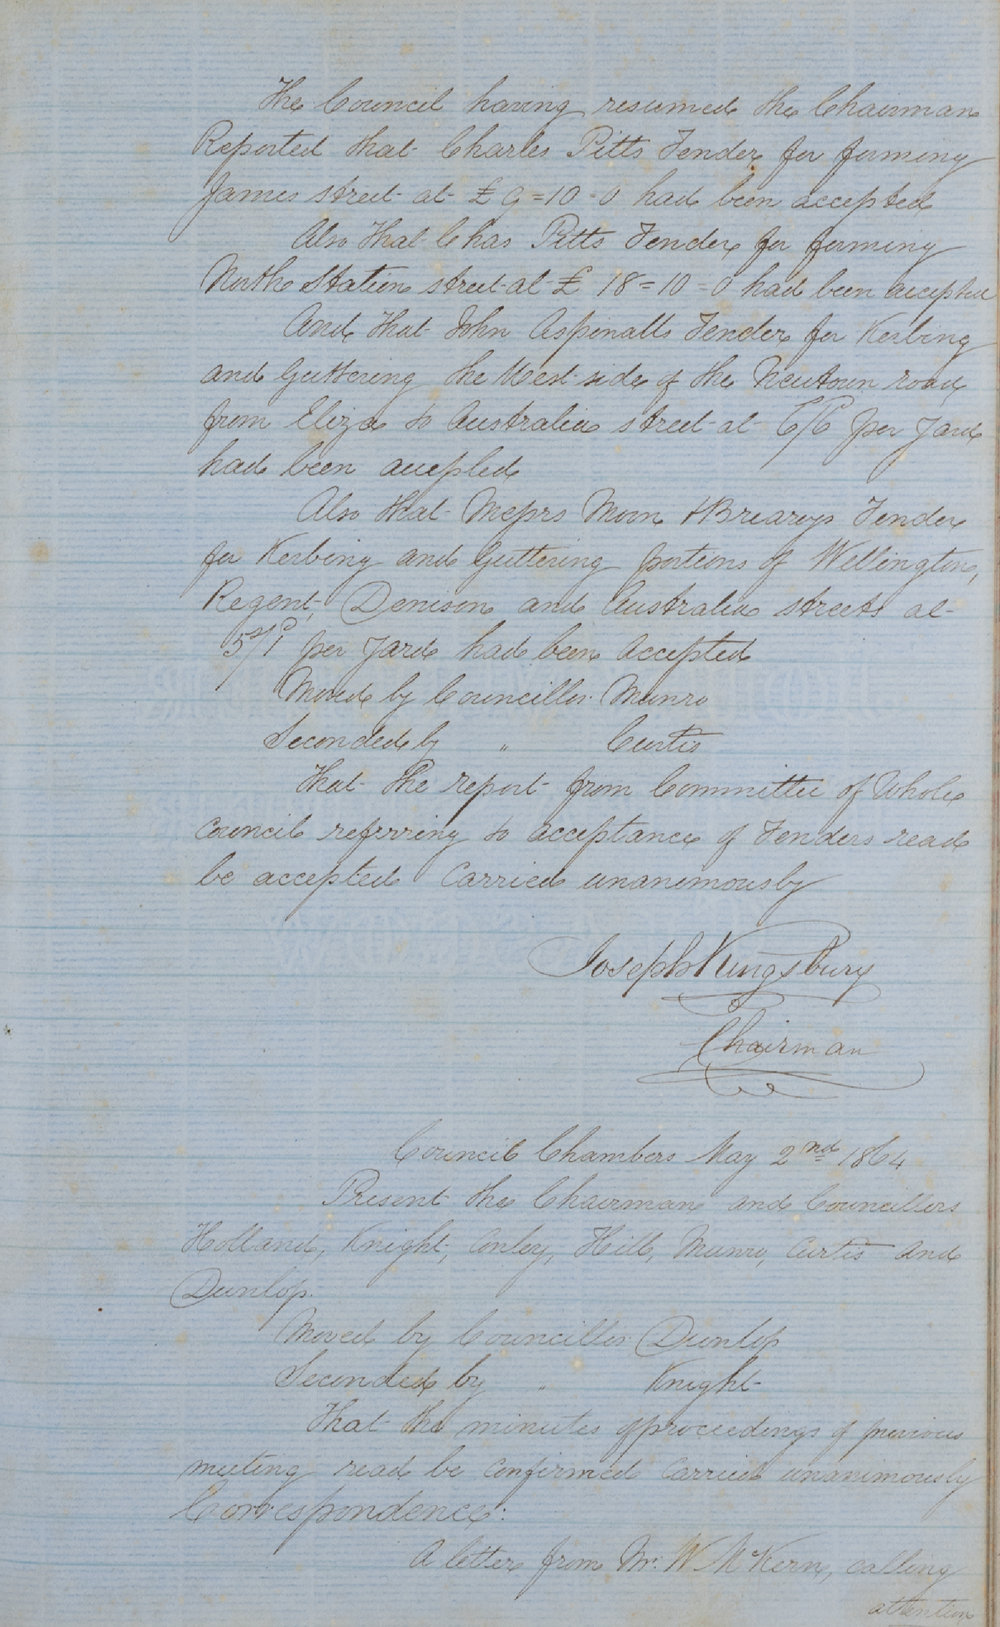 The Council having resumed the Chairman
Reported that Charles Pitts Tender for forming
James street at £9=10-0 had been accepted
Also that Chas Pitts Tender for forming
North Station street at £18=10-0 had been accepted
And that John Aspinalls Tender for Kerbing
and Guttering the West side of the Newtown road
from Eliza to Australia street at 6/6 per Yard
had been accepted
Also that Messrs Moon & Breareys Tender
for Kerbing and Guttering portions of Wellington,
Regent, Denison and Australia streets at
5s/1d per Yard had been Accepted
Moved by Councillor Munro
Seconded by " Curtis
That the report from Committee of Whole
Council referring to acceptance of Tenders read
be accepted Carried unanimously
Joseph Kingsbury
Chairman
Council Chambers May 2nd 1864
Present the Chairman and Councillors
Holland, Knight, Conley, Hill, Munro, Curtis and
Dunlop.
Moved by Councillor Dunlop
Seconded by " Knight
That the minutes of proceedings of previous
meeting read be confirmed Carried unanimously
Correspondence:
A letter from Mr. W McKern, calling
attention